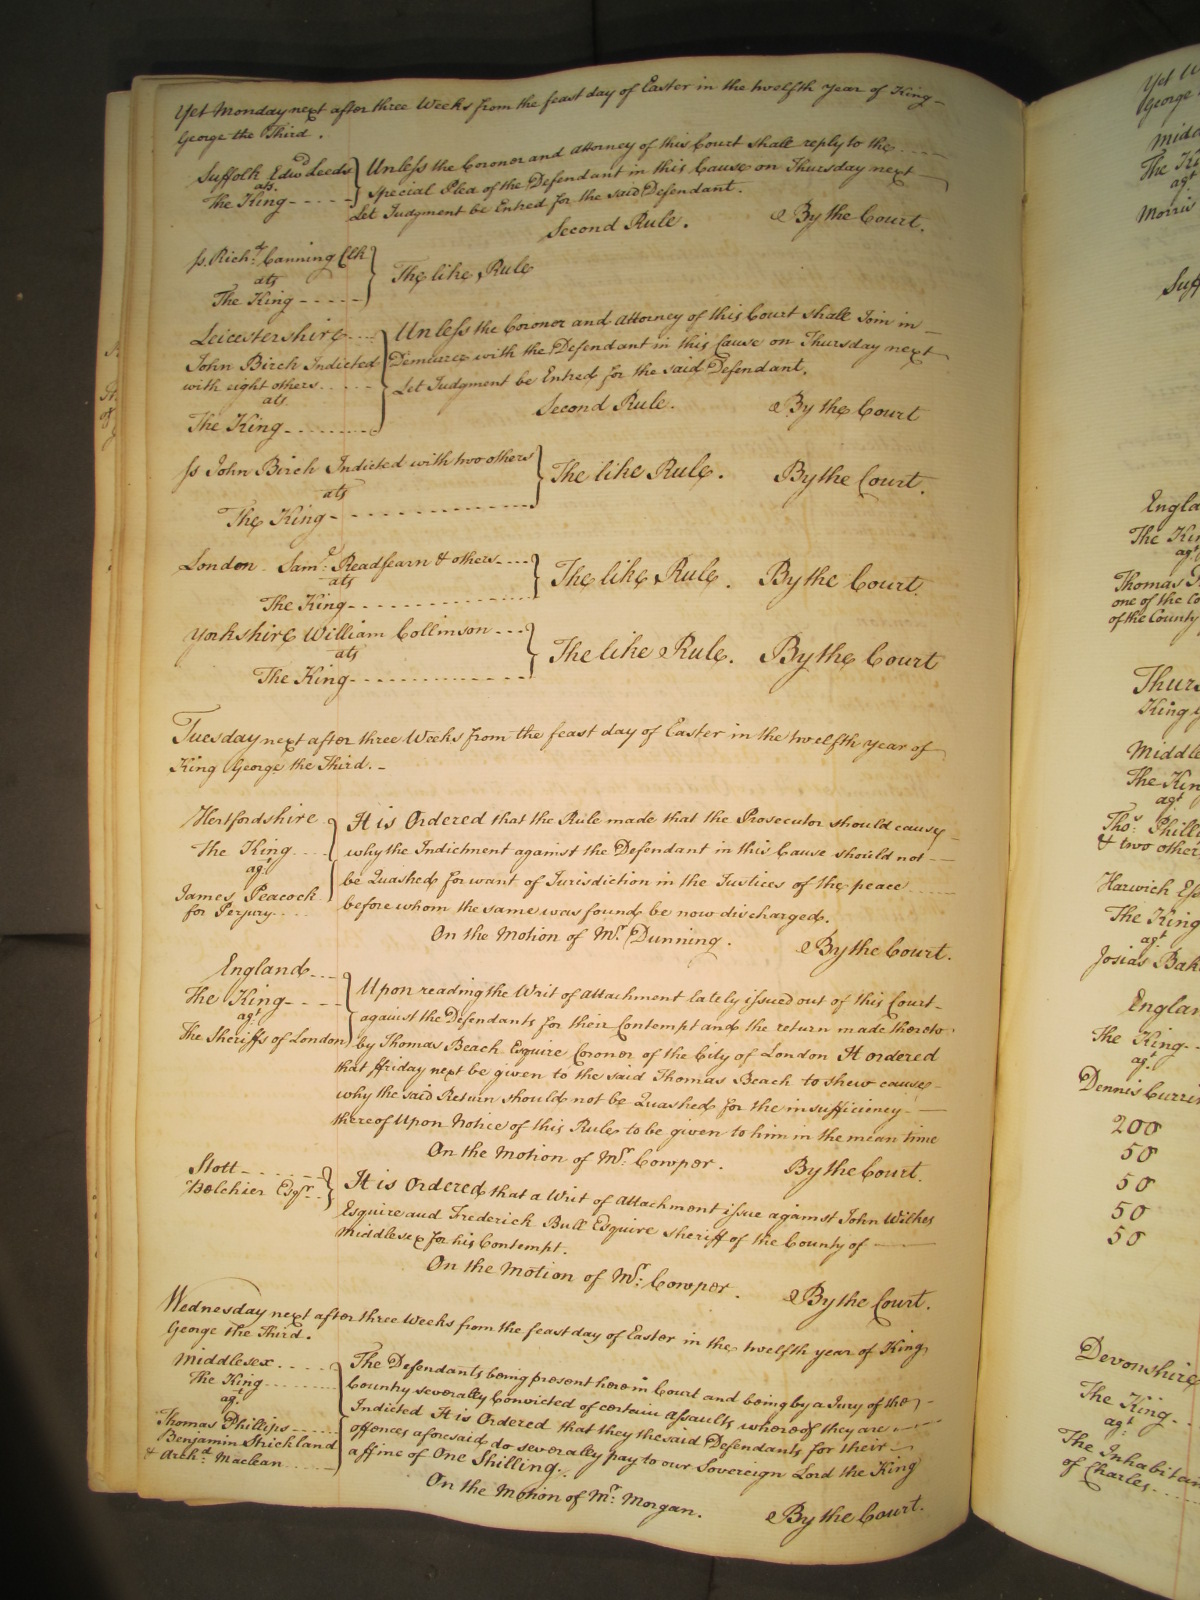 Yet Monday next after three Weeks from the feast day of Easter in the twelfth year of King
George the Third.
Suffolk Edwd Leeds
ats.
The King
Unless the Coroner and Attorney of this Court shall reply to the
Special Plea of the Defendant in this Cause on Thursday next
Let Judgment be Entred for the said Defendant.
Second Rule. By the Court.
ss. Richd. Canning Clk
ats
The King
The like Rule
Leicestershire
John Birch Indicted
with eight others
ats
The King
Unless the Coroner and Attorney of this Court shall Join in
Demurrer with the Defendant in this Cause on Thursday next
Let Judgment be Entred for the said Defendant.
Second Rule. By the Court
ss John Birch Indicted with two others
ats
The King
The like Rule. By the Court.
London Saml. Readfearn & others
ats
The King
The like Rule. By the Court.
Yorkshire William Collinson
ats
The King
The like Rule. By the Court
Tuesday next after three Weeks from the feast day of Easter in the twelfth year of
King George the Third.
Hertfordshire
The King
agt.
James Peacock
for Perjury
It is Ordered that the Rule made that the Prosecutor should cause
why the Indictment against the Defendant in this Cause should not
be Quashed for want of Jurisdiction in the Justices of the peace
before whom the same was found be now discharged.
On the Motion of Mr. Dunning. By the Court.
England
The King
agt
The Sheriffs of London
Upon reading the Writ of Attachment lately issued out of this Court
against the Defendants for their Contempt and the return made thereto
by Thomas Beach Esquire Coroner of the City of London It ordered
that ffriday next be given to the said Thomas Beach to shew cause
why the said Return should not be Quashed for the insufficiency
thereof Upon Notice of this Rule to be given to him in the mean time
On the Motion of Mr. Cowper. By the Court.
Stott
Belchier Esqr.
It is Ordered that a Writ of Attachment issue against John Wilkes
Esquire and Frederick Bull Esquire Sheriff of the County of
Middlesex for his Contempt.
On the Motion of Mr. Cowper. By the Court.
Wednesday next after three Weeks from the feast day of Easter in the twelfth year of King
George the Third.
Middlesex
The King
agt
Thomas Phillips
Benjamin Strickland
& Archd. Maclean
The Defendants being present here in Court and being by a Jury of the
County severally Convicted of certain Assaults whereof they are
Indicted It is Ordered that they the said Defendants for their
offences aforesaid do severally pay to our Sovereign Lord the King
affine of One Shilling.
On the Motion of Mr. Morgan. By the Court.
Yet
George
The
agt
Morris
The
agt
Thomas
one of the
of the County
King
The
agt
Thos. Philli
& two other
Harwich
The King
agt
Josias
The King
agt
Dennis
200
50
50
50
50
Devonshire
The King
agt
The
of Charles